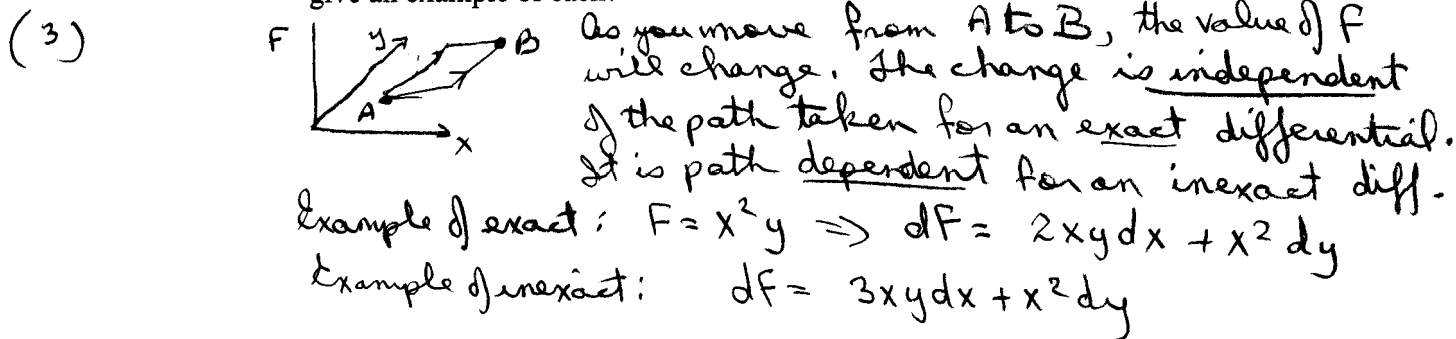 give an example of each.
(3)
F y B As you move from A to B, the value of F
will change. The change is independent
A
of the path taken for an exact differential.
x
It is path dependent for an inexact diff.
Example of exact: F = x²y ⇒ dF = 2xydx + x² dy
Example of inexact: dF = 3xydx + x² dy